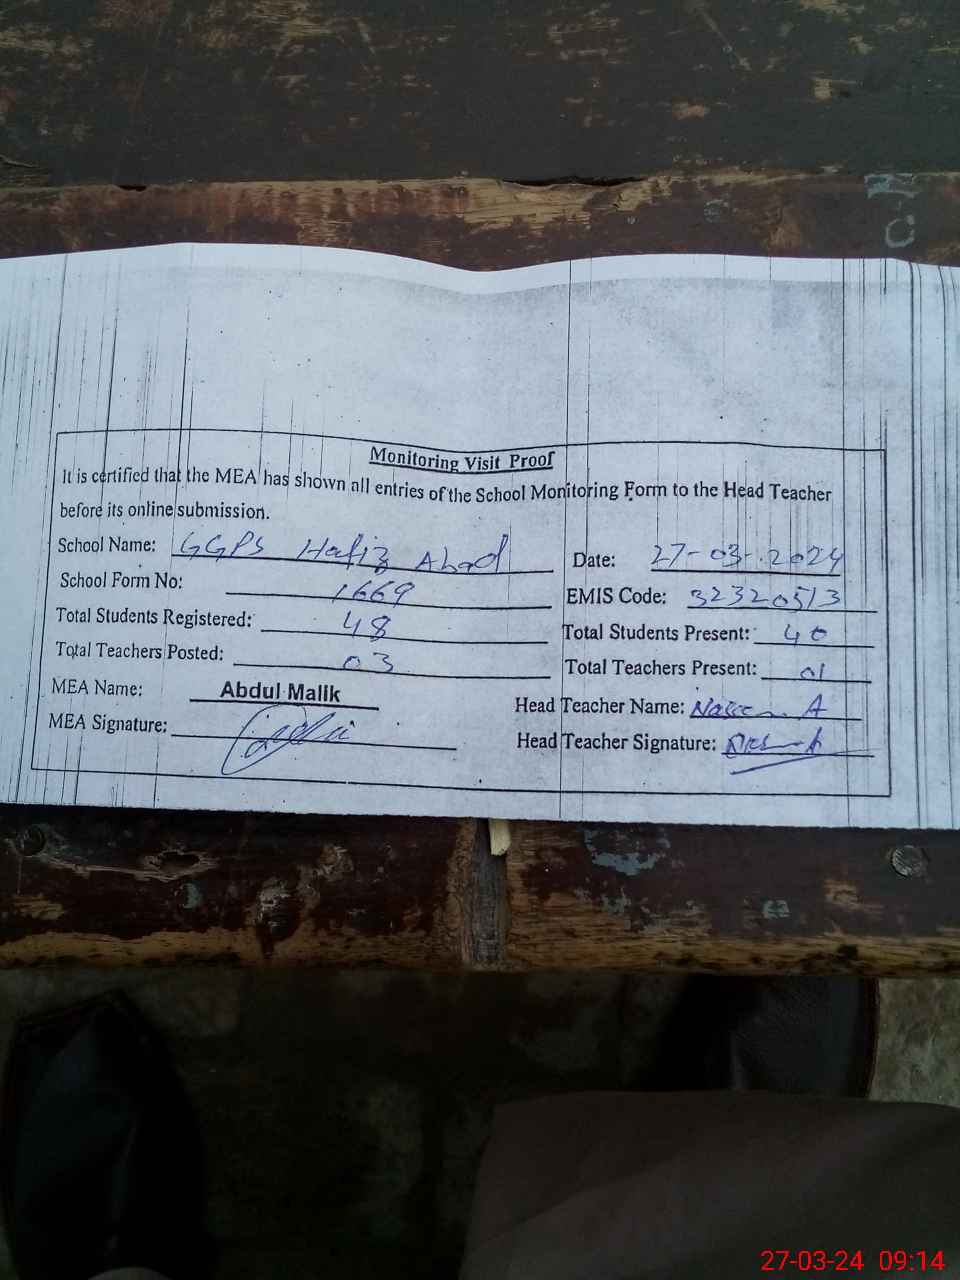 Monitoring Visit Proof
It is certified that the MEA has shown all entries of the School Monitoring Form to the Head Teacher
before its online submission.
School Name: GGPS Hafiz Abad Date: 27-03-2024
School Form No: 1669 EMIS Code: 32320513
Total Students Registered: 48 Total Students Present: 40
Total Teachers Posted: 03 Total Teachers Present: 01
MEA Name: Abdul Malik Head Teacher Name: A
MEA Signature: Head Teacher Signature:
27-03-24 09:14